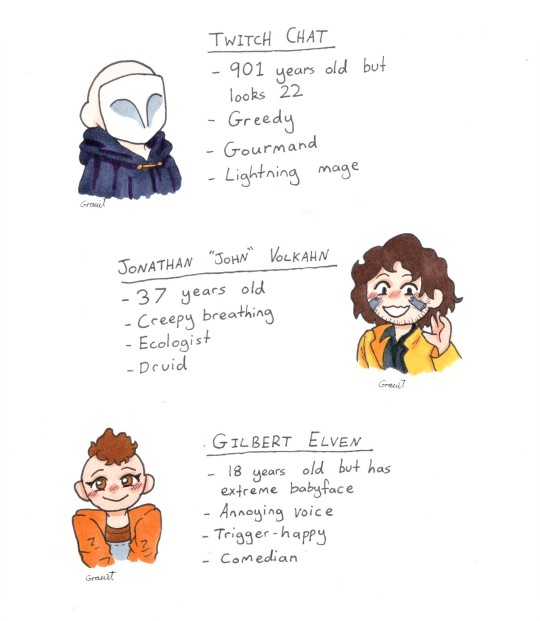 TWITCH CHAT
- 901 years old but
looks 22
- Greedy
- Gourmand
- Lightning mage
JONATHAN "JOHN" VOLKAHN
- 37 years old
- Creepy breathing
- Ecologist
- Druid
GILBERT ELVEN
- 18 years old but has
extreme babyface
- Annoying voice
- Trigger-happy
- Comedian